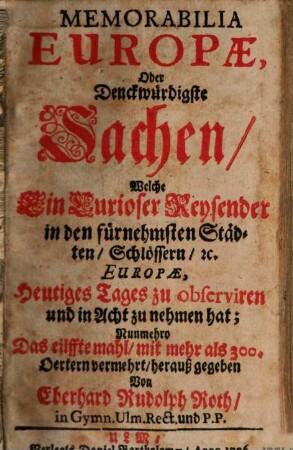 MEMORABILIA
EUROPÆ,
Oder
Denckwürdigste
Sachen/
Welche
Ein Curioser Reysender
in den fürnehmsten Städ-
ten/ Schlössern/ ꝛc.
EUROPÆ,
Heutiges Tages zu observiren
und in Acht zu nehmen hat;
Nunmehro
Das eilffte mahl/ mit mehr als 300.
Oertern vermehrt/ herauß gegeben
Von
Eberhard Rudolph Roth/
in Gymn. Ulm. Rect. und P.P.
ULM/
Daniel Bartholomæ/ Anno